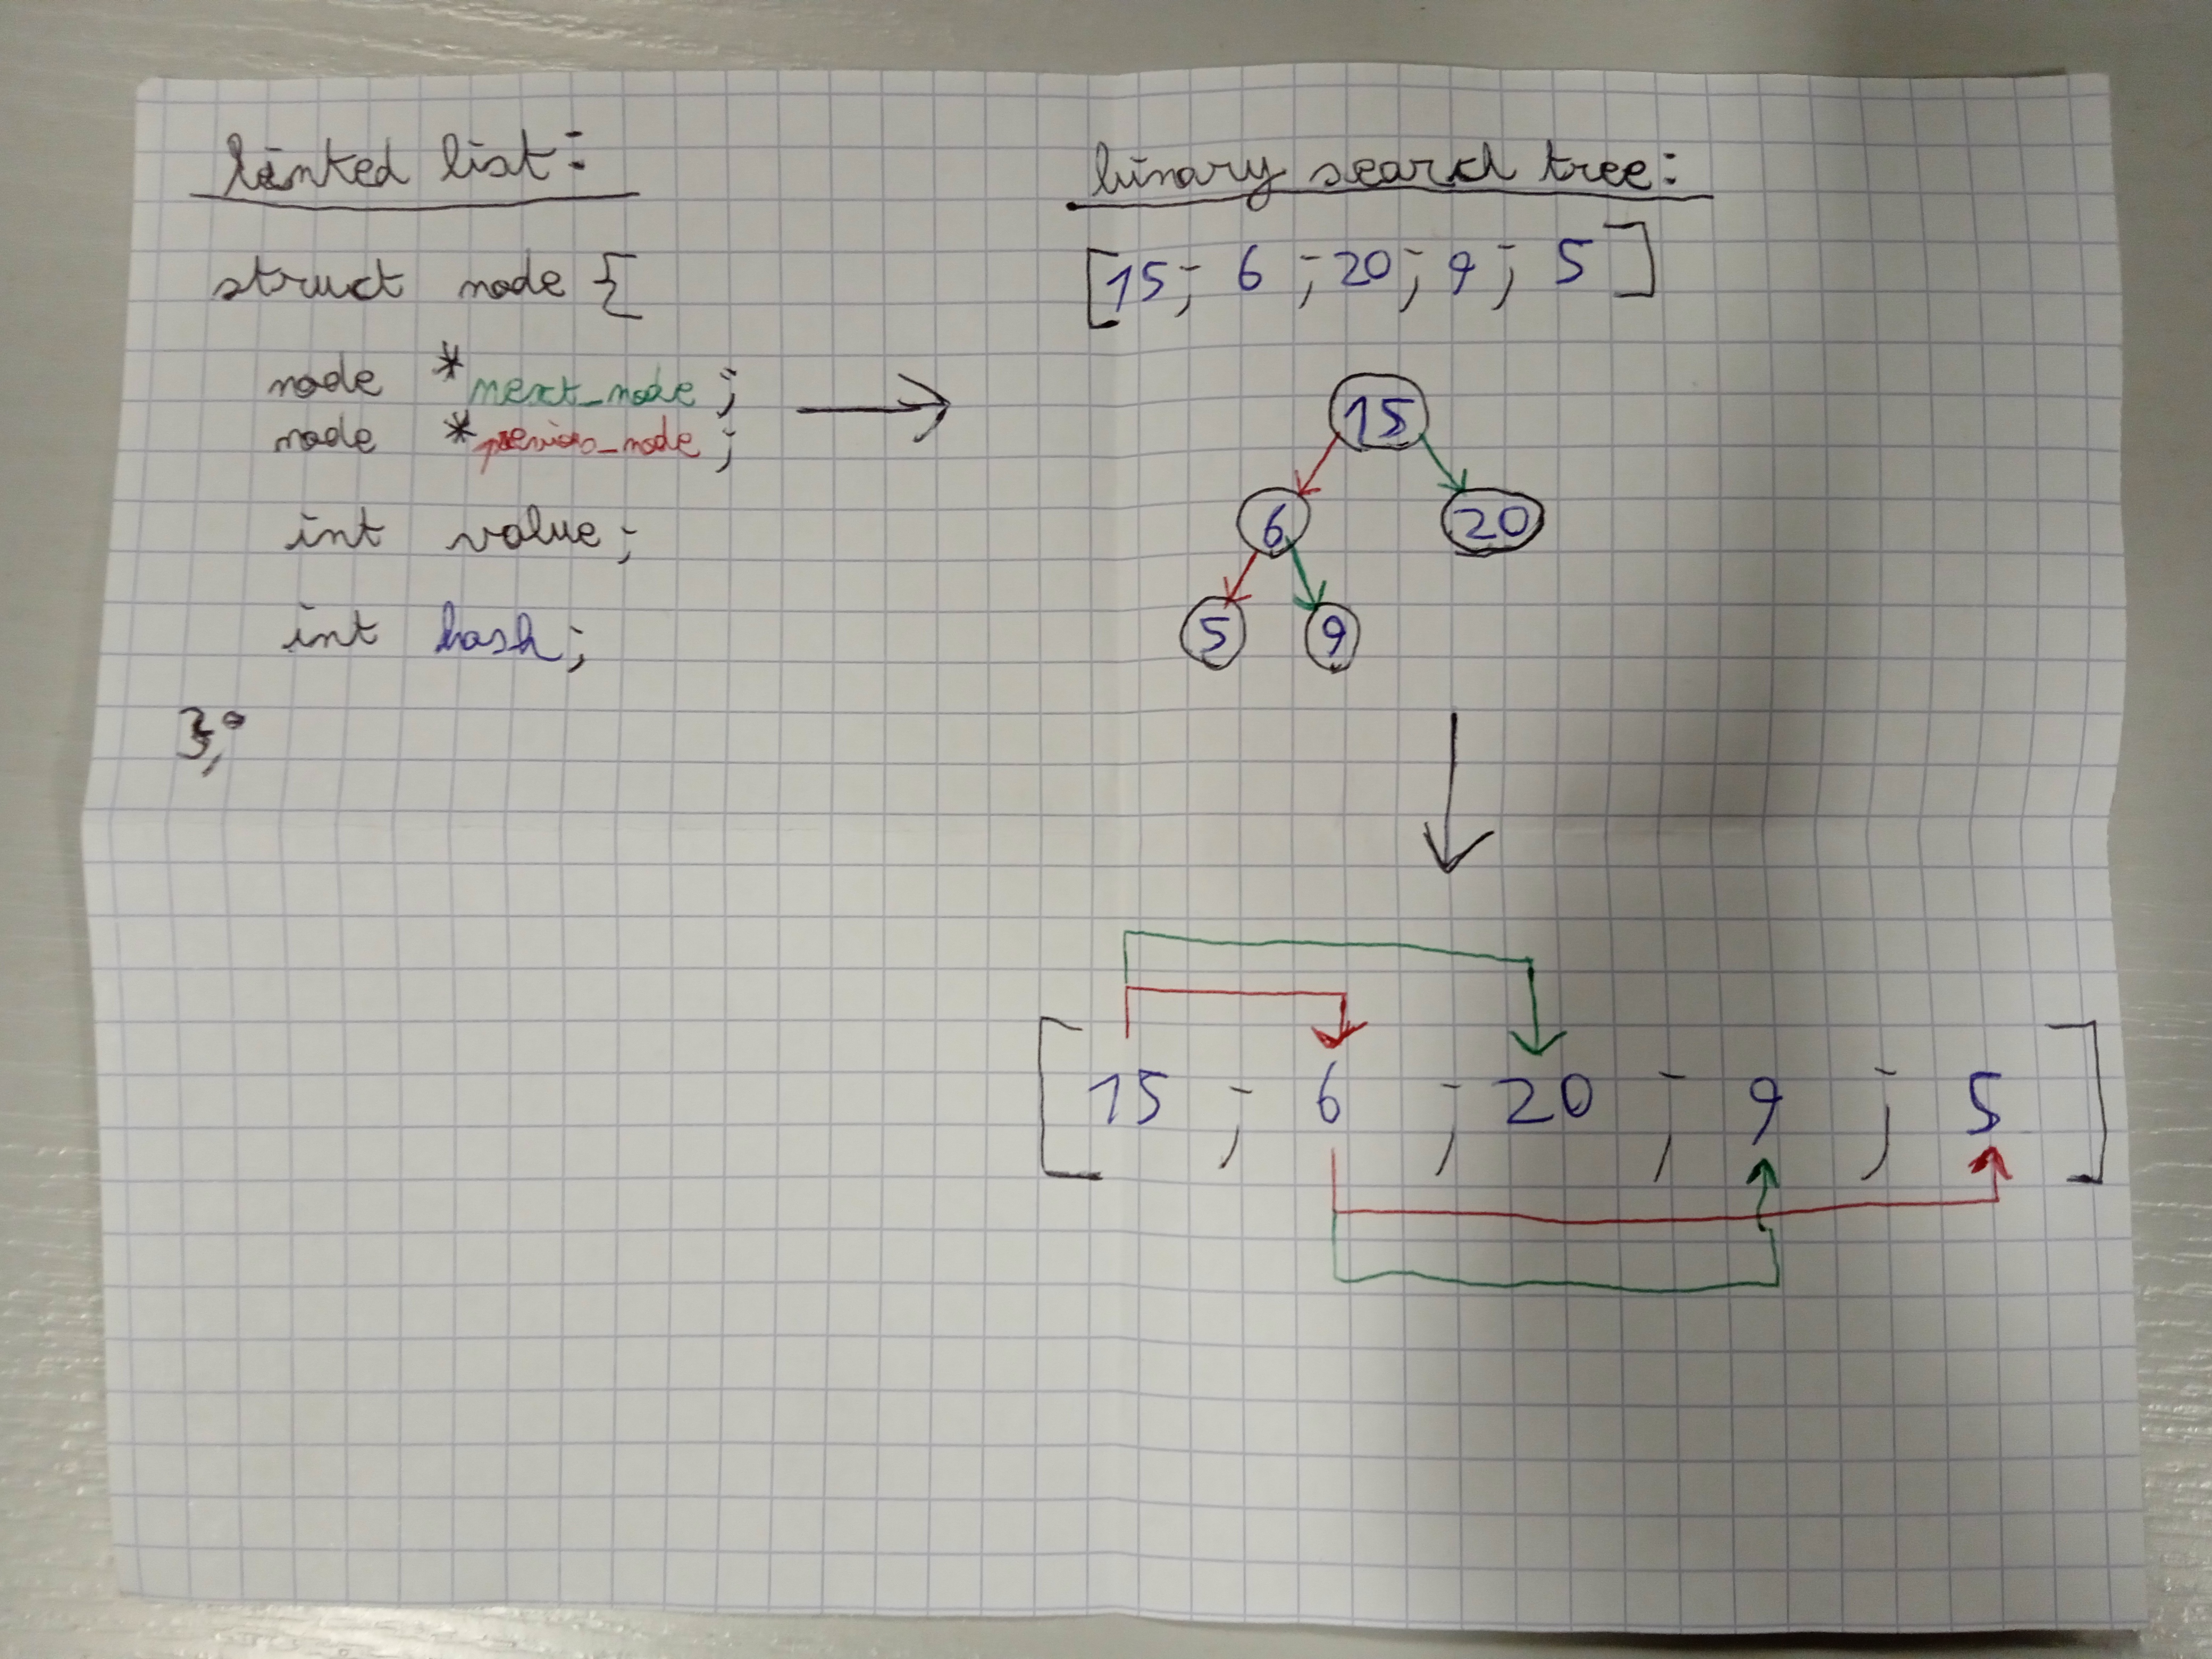 linked list:
struct node {
node *next_node;
node *previous_node;
int value;
int hash;
};
binary search tree:
[15; 6; 20; 9; 5]
15
6 20
5 9
[15; 6; 20; 9; 5]